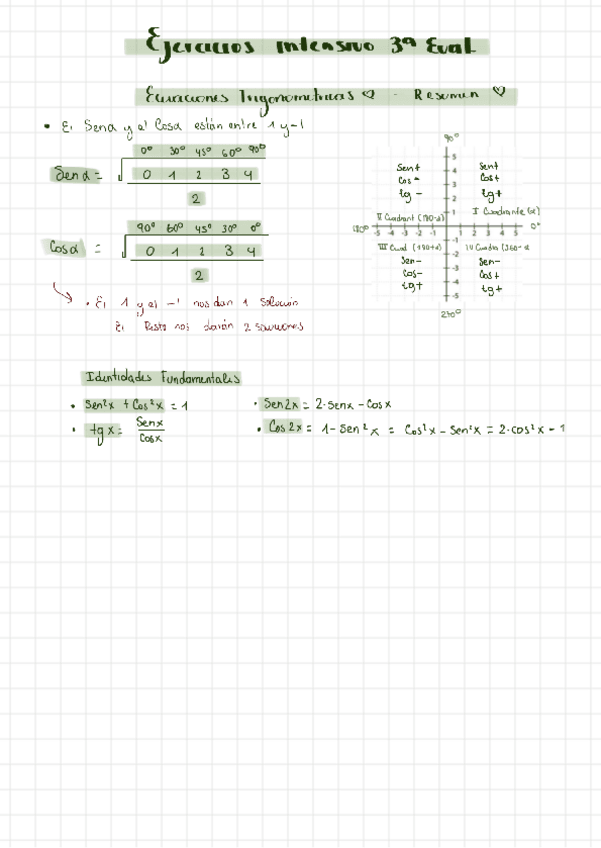 Ejercicios Intensivo 3ª Eval
Ecuaciones Trigonometricas ♡ - Resumen ♡
• El Senα y el Cosα están entre 1 y -1
0° 30° 45° 60° 90°
Sen α = √ 0 1 2 3 4
2
90° 60° 45° 30° 0°
Cosα = √ 0 1 2 3 4
2
• El 1 y el -1 nos dan 1 solución
El Resto nos darán 2 soluciones
90°
5
4
3
2
1
Sen+
Cos-
tg -
Sen+
Cos+
tg+
II Cuadrant (180-α)
I Cuadrante (α)
180°
-5 -4 -3 -2 -1 1 2 3 4 5
0°
III Cuad (180+α)
IV Cuadra (360-α
Sen-
Cos-
tg+
Sen-
Cos+
tg+
-1
-2
-3
-4
-5
270°
Identidades Fundamentales
• Sen²x + Cos²x = 1
• Sen2x = 2·Senx - Cosx
• tg x = Senx / Cosx
• Cos2x = 1 - Sen²x = Cos²x - Sen²x = 2·cos²x - 1